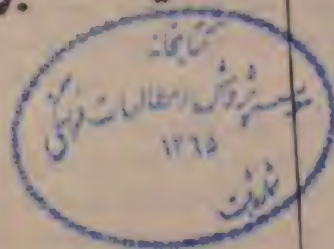 کتابخانه
پژوهش و مطالعات فرهنگی
۱۳۶۵
شماره ثبت